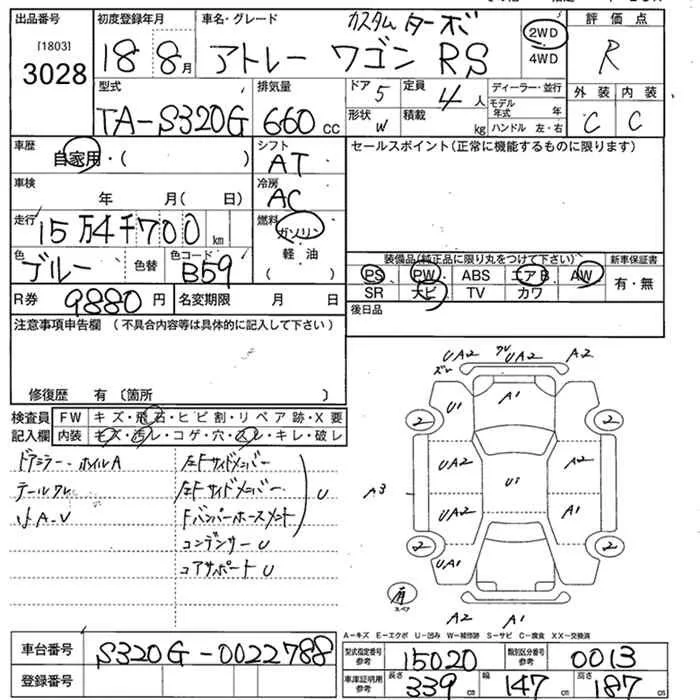 出品番号 初度登録年月 車名・グレード カスタム ターボ 2WD 評価点
[1803] 3028 18 8月 アトレー ワゴン RS 4WD R
型式 排気量 ドア 5 定員 4人 ディーラー・並行 外装 内装
TA-S320G 660cc 形状 W 積載 kg モデル年式 年 ハンドル 左・右 C C
車歴 自家用・( ) シフト AT セールスポイント(正常に機能するものに限ります)
車検 年 月( 日) 冷房 AC
走行 15万4千700km 燃料 ガソリン 軽油 ( )
装備品(純正品に限り丸をつけて下さい) 新車保証書
色 ブルー 色替 色コード B59 PS PW ABS エアB AW 有・無
SR 大ビ TV カワ
R券 9880円 名変期限 月 日 後日品
注意事項申告欄 (不具合内容等は具体的に記入して下さい)
修復歴 有 〔箇所 〕
検査員 FW キズ・飛石・ヒビ割・リペア跡・X要
記入欄 内装 キズ・汚レ・コゲ・穴・スレ・キレ・破レ
ドアミラー・ホイルA 左Fサイドメンバー
テールワレ 左Fサイドメンバー U
A-V Fバンパーホースメント
コンデンサー U
コアサポート U
UA2 ワレ UA2 A2
ズレ
A1
U1
2 2
UA2 U1 A2
A3
UA2 A1
2 2
UA1
スペア
A2 A1
A-キズ E-エクボ U-凹み W-補修跡 S-サビ C-腐食 XX-交換済
車台番号 S320G-0022788 型式指定番号 参考 15020 類別区分番号 参考 0013
登録番号 車庫証明用 参考 長さ 339cm 幅 147cm 高さ 187cm